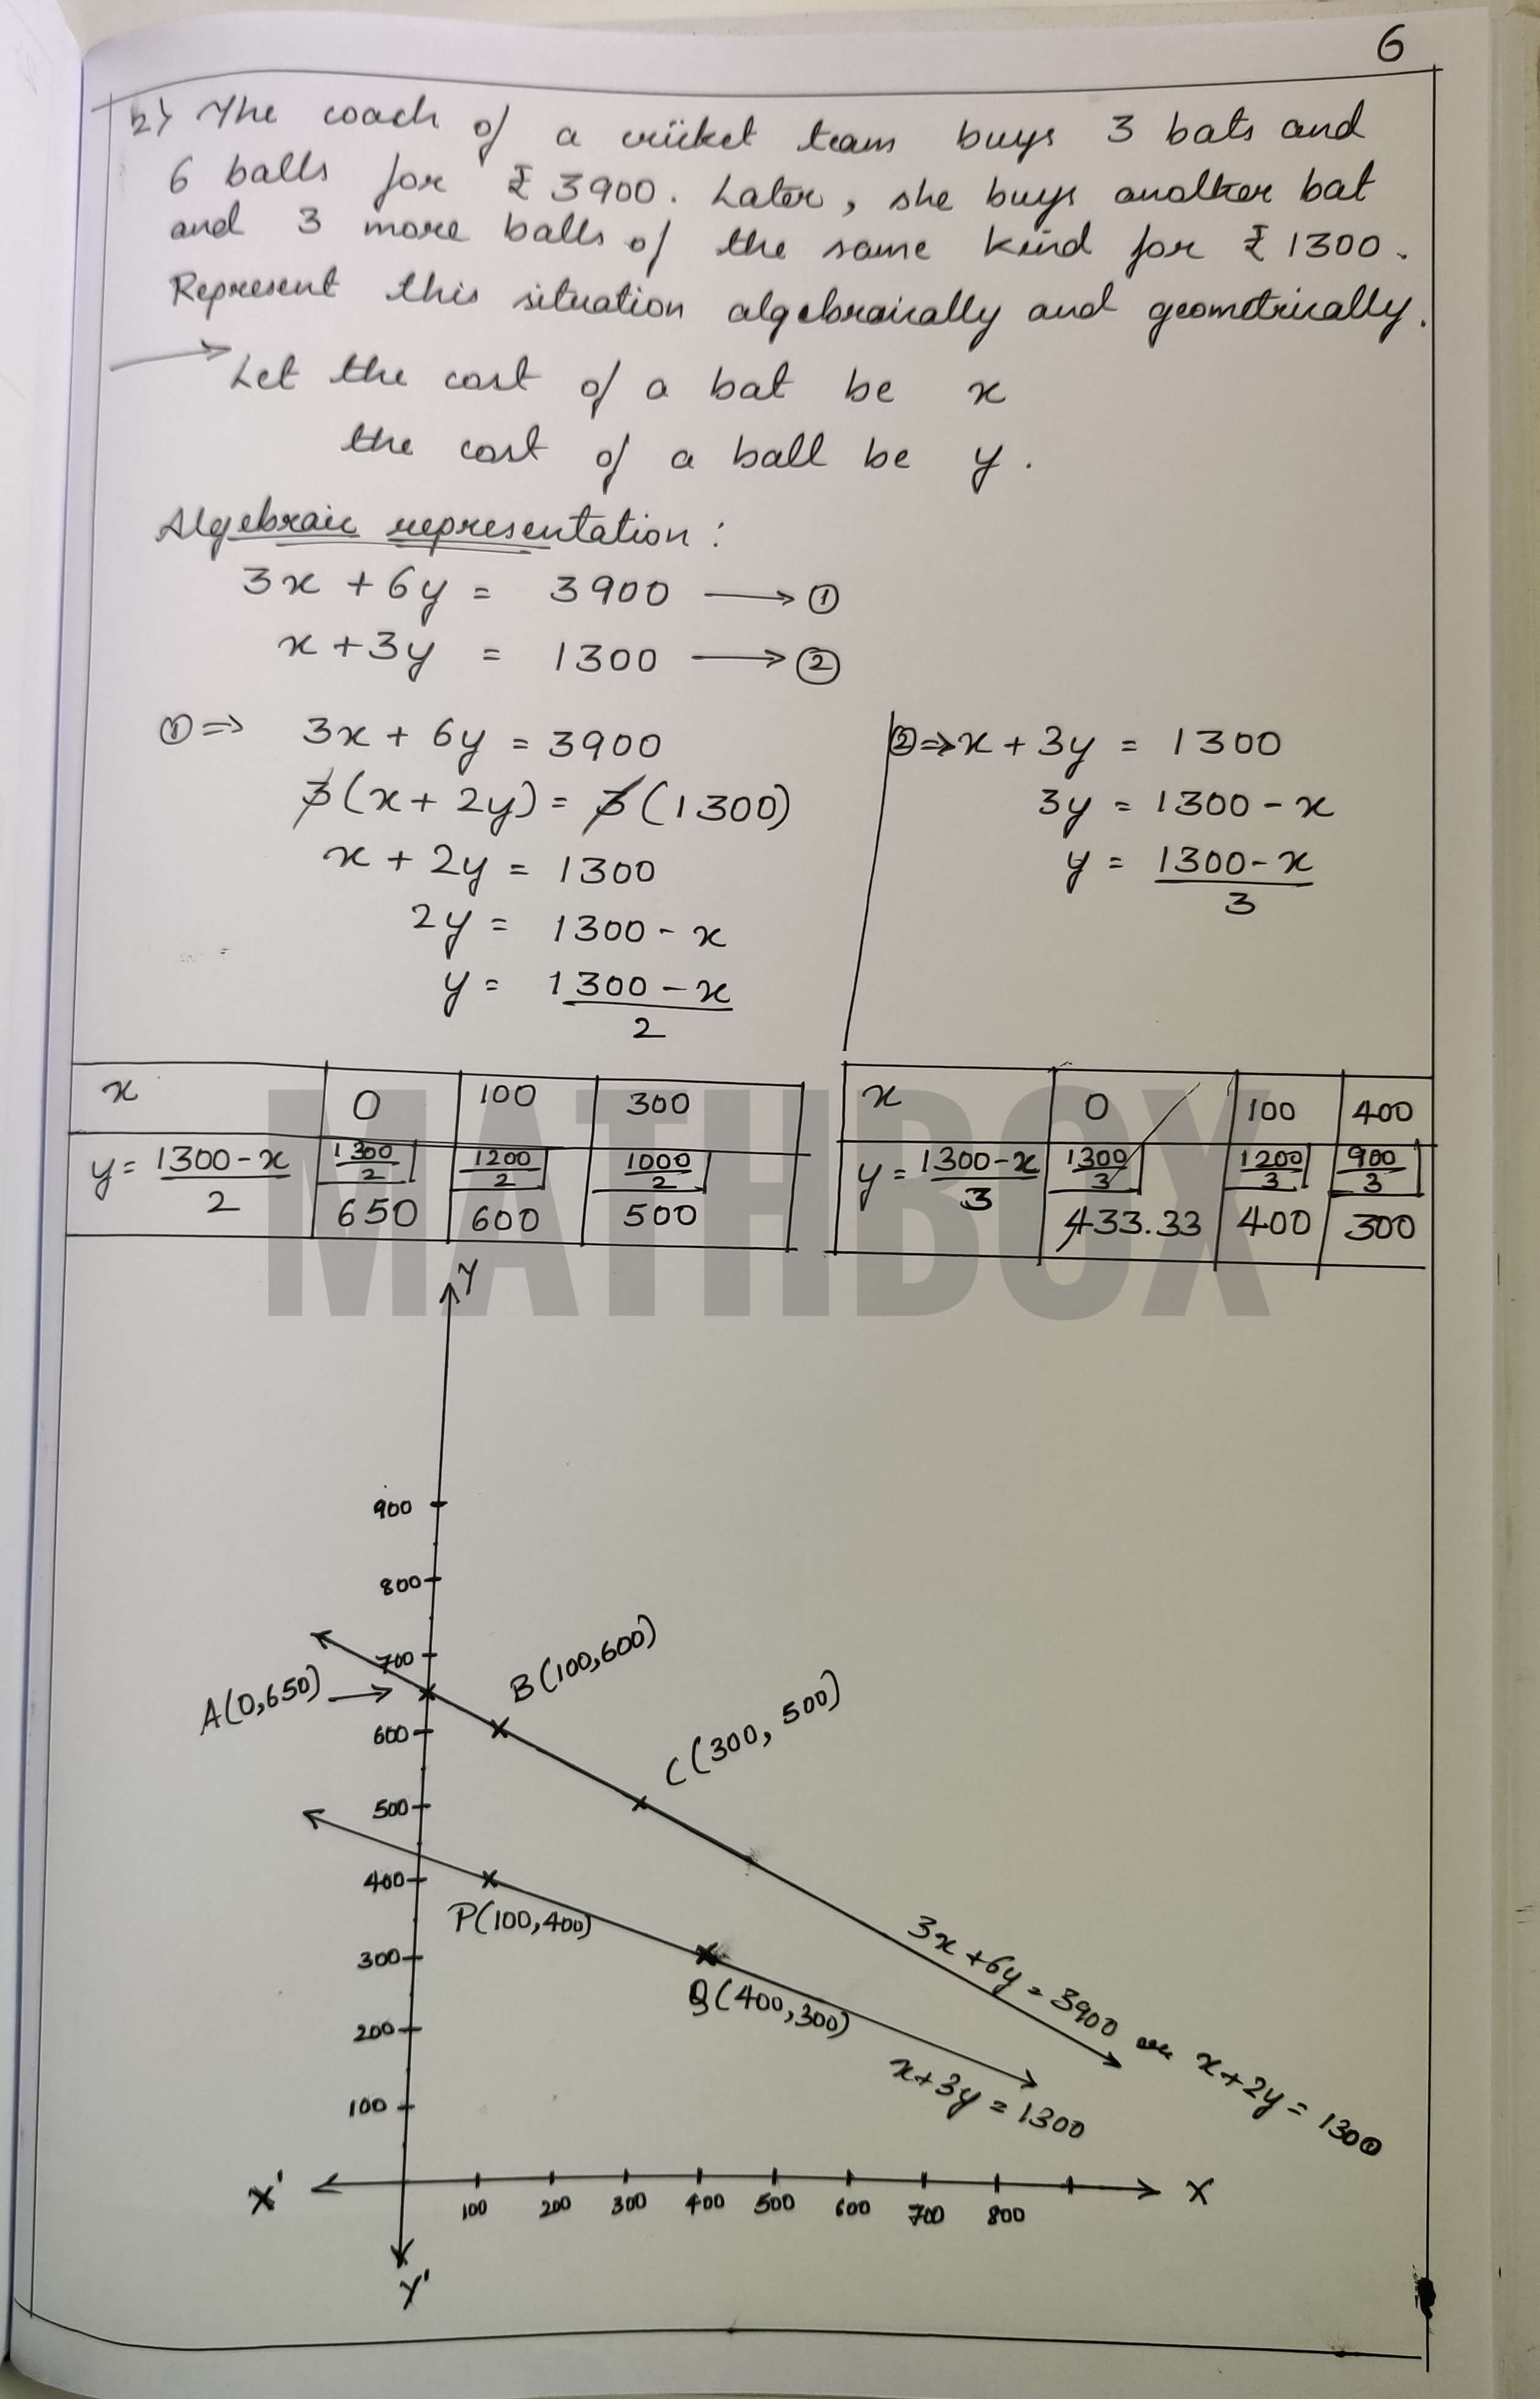 6
2) The coach of a cricket team buys 3 bats and
6 balls for ₹ 3900. Later, she buys another bat
and 3 more balls of the same kind for ₹ 1300.
Represent this situation algebraically and geometrically.
→ Let the cost of a bat be x
the cost of a ball be y.
Algebraic representation:
3x + 6y = 3900 → ①
x + 3y = 1300 → ②
① ⇒ 3x + 6y = 3900
3(x + 2y) = 3(1300)
x + 2y = 1300
2y = 1300 - x
y = 1300 - x / 2
② ⇒ x + 3y = 1300
3y = 1300 - x
y = 1300 - x / 3
x 0 100 300
y = 1300 - x / 2 1300/2 1200/2 1000/2
650 600 500
x 0 100 400
y = 1300 - x / 3 1300/3 1200/3 900/3
433.33 400 300
MATHBOX
Y
900
800
700
A(0,650) →
B(100,600)
600
C(300, 500)
500
400
P(100,400)
300
Q(400,300)
200
3x + 6y = 3900
x + 2y = 1300
x + 3y = 1300
100
X' X
100 200 300 400 500 600 700 800
Y'